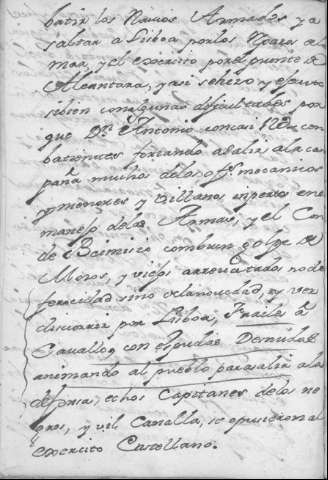 batir los Navios Armados, y a
saltar a Lisboa por la parte del
mar, y el exercito por el puente de
Alcantara, y asi se hizo, y ejecuto
si bien con algunas dificultades por
que Dn. Antonio con casi 12 com
batientes forzando a salir a la cam
paña muchos de los ofs. mecanicos
y menores y Villanos inpertos en el
manejo de las Armas, y el Con
de Bcimioso con un golpe de
Mozos, y viejos arrevatados no de
ferocidad sino de la novedad, y ver
discurrir por Lisboa, Frailes a
Cavallo, con espadas Desnudas
animando al pueblo para salir a la
defensa; echos Capitanes de los ne
gros, y vil Canalla, se opusieron al
exercito Castellano.